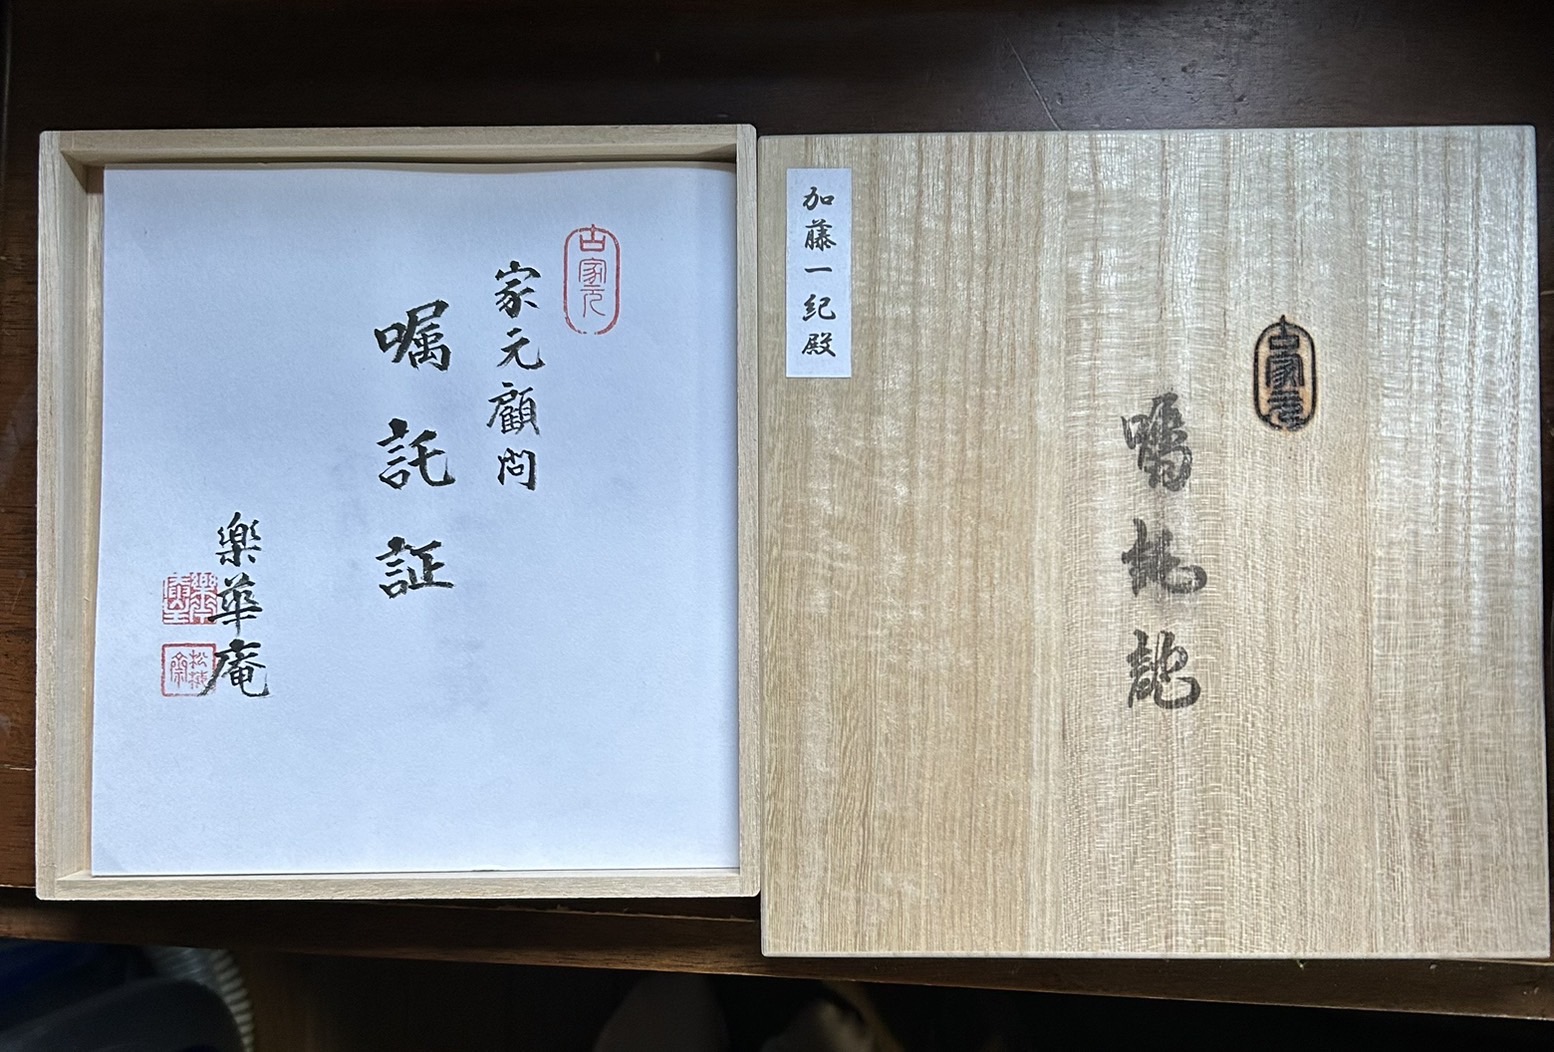 古家元
家元顧問
嘱託証
樂華庵
古家元
嘱託証
加藤一紀殿